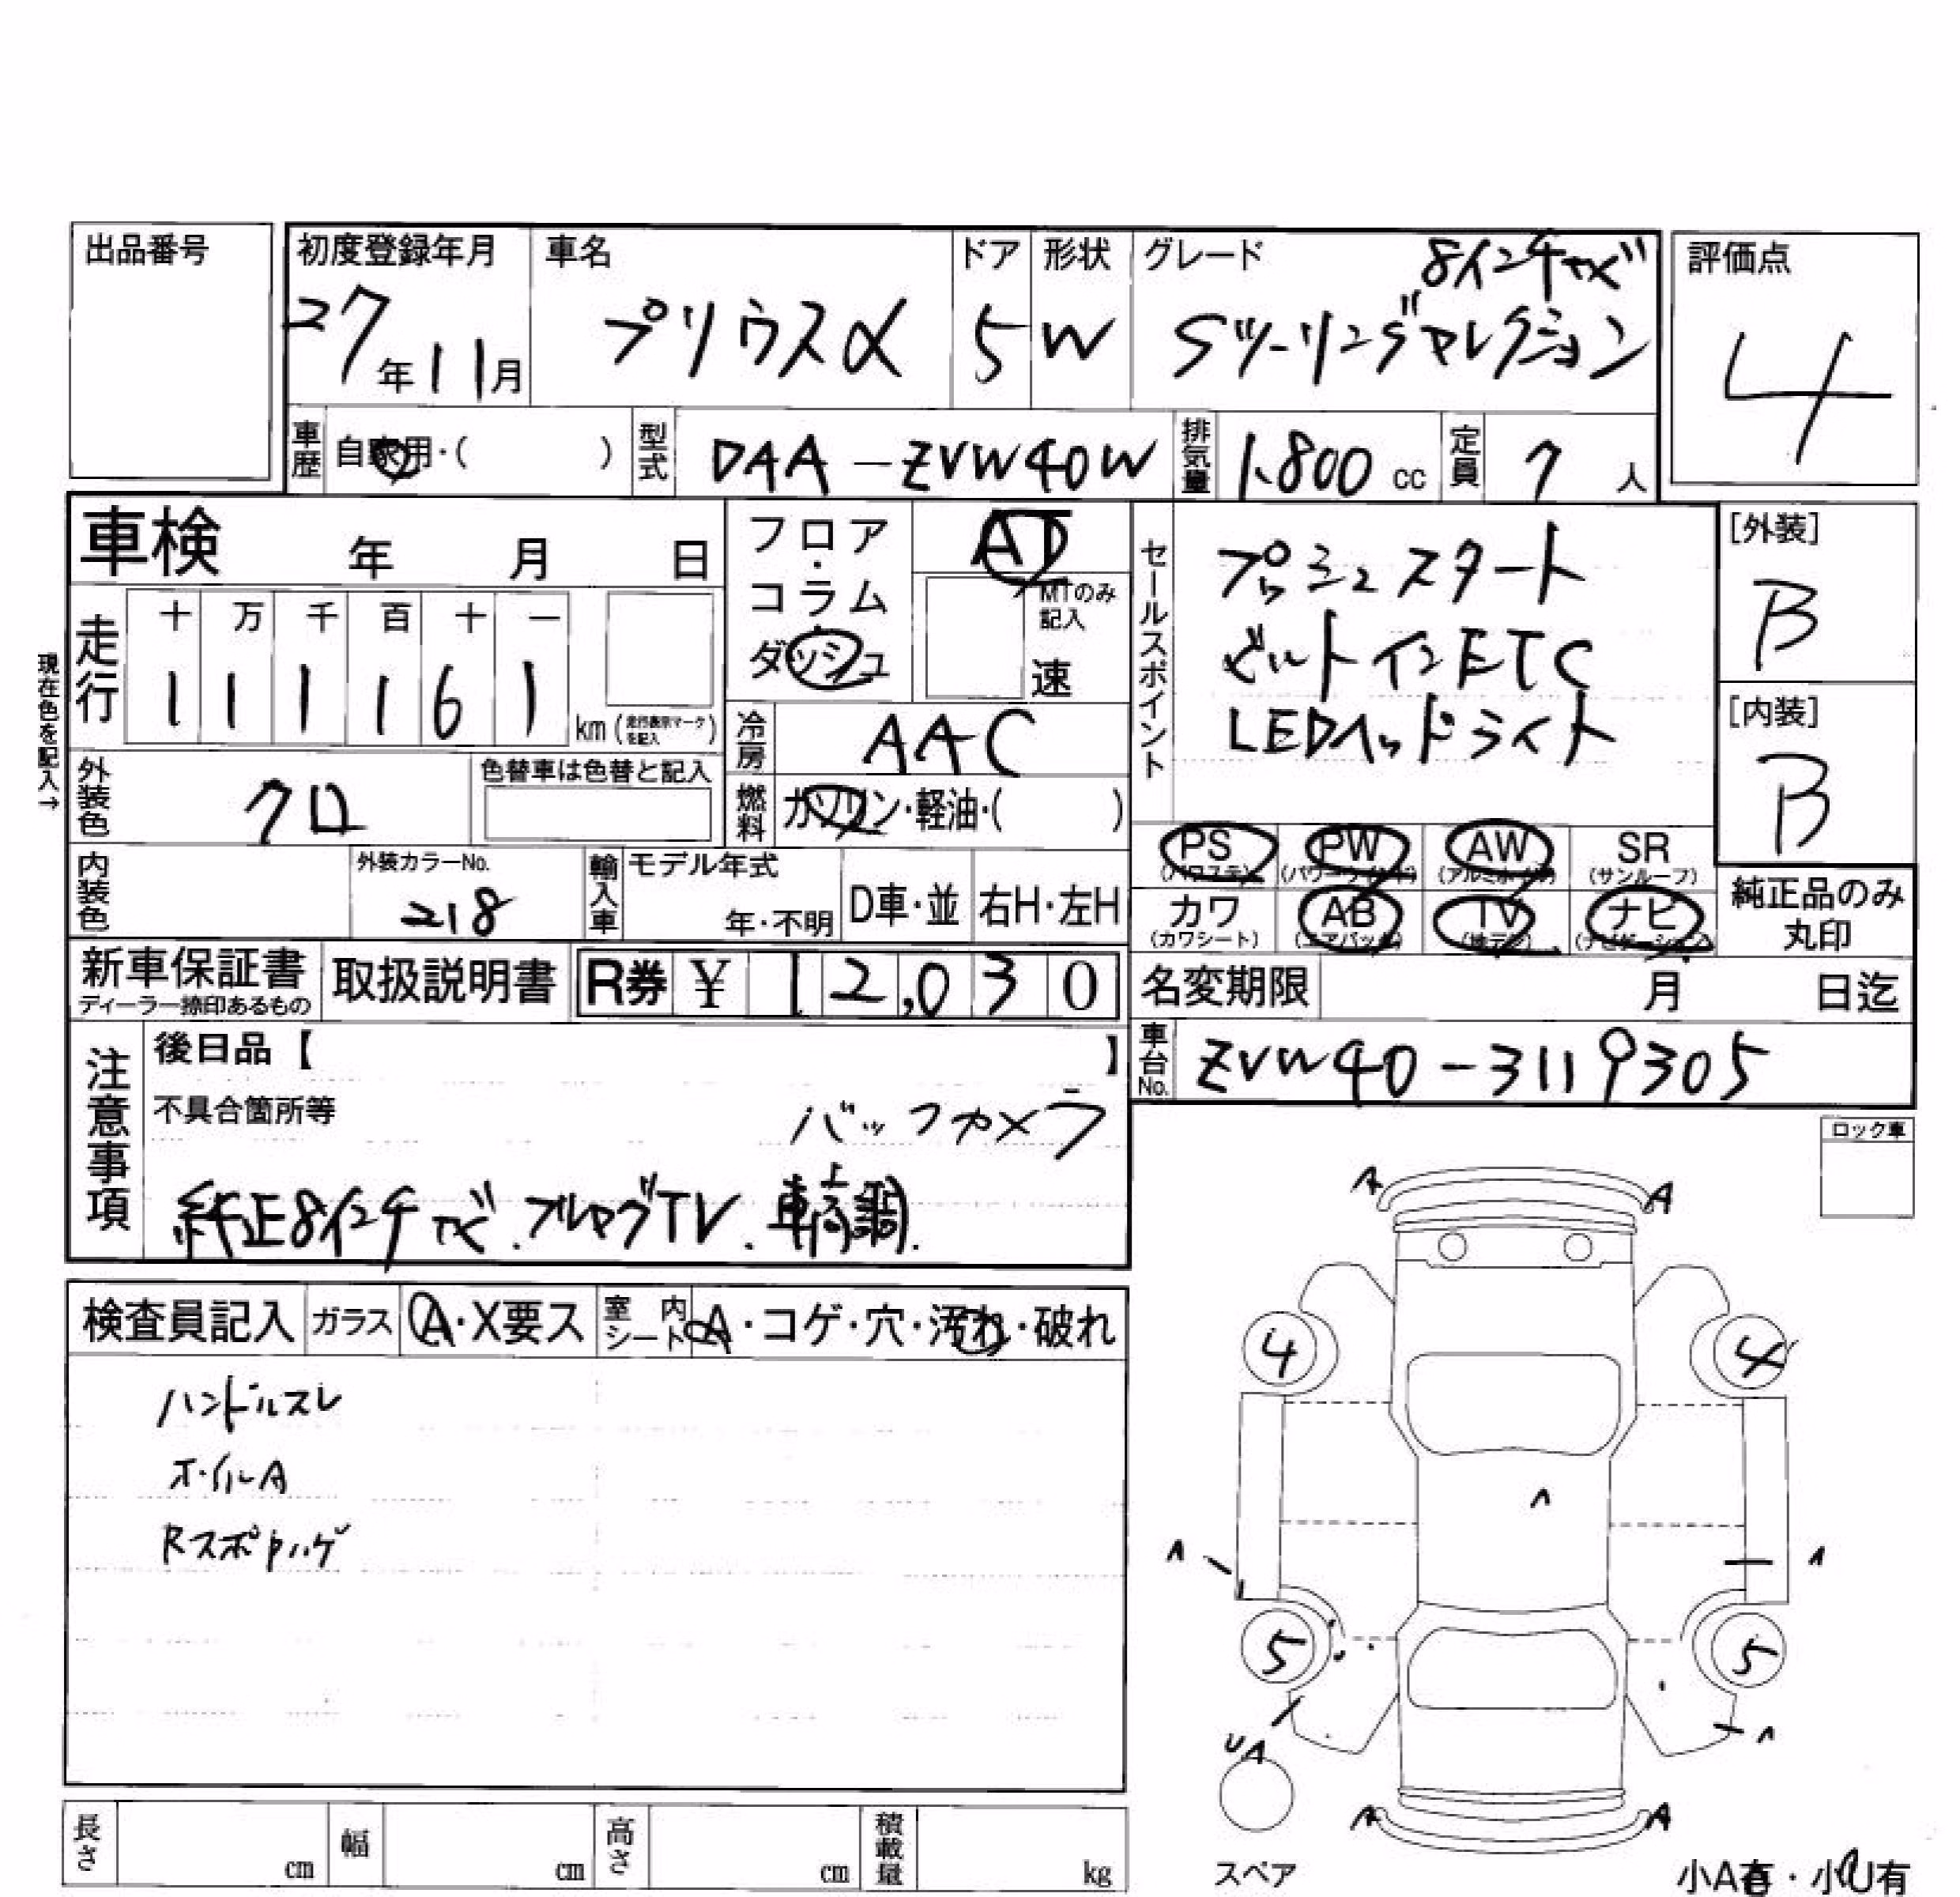 出品番号
初度登録年月 車名 ドア 形状 グレード 8インチナビ 評価点
27年11月 プリウスα 5 W Sツーリングセレクション 4
車歴 自家用・( ) 型式 DAA-ZVW40W 排気量 1,800cc 定員 7人
車検 年 月 日
フロア・コラム・ダッシュ AT
MTのみ記入 速
セールスポイント
プッシュスタート
ビルトインETC
LEDヘッドライト
[外装] B
[内装] B
現在色を記入→
走行 十 万 千 百 十 一
1 1 1 1 6 1 km (走行表示マークを記入)
冷房 AAC
外装色 クロ 色替車は色替と記入
燃料 ガソリン・軽油・( )
PS (パワステ) PW (パワーウインド) AW (アルミホイル) SR (サンルーフ)
カワ (カワシート) AB (エアバック) TV (地デジ) ナビ (ナビゲーション)
純正品のみ丸印
内装色 外装カラーNo. 218 輸入車 モデル年式 年・不明 D車・並 右H・左H
新車保証書 ディーラー捺印あるもの 取扱説明書 R券 ¥ 12,030
名変期限 月 日迄
車台No. ZVW40-3119305
注意事項
後日品【 】
不具合箇所等 バックカメラ
純正8インチナビ.フルセグTV.車高調.
ロック車
検査員記入 ガラス A・X要ス 室内シート A・コゲ・穴・汚れ・破れ
ハンドルスレ
ホイルA
Rスポイラハゲ
A A
4 4
A
A A
5 5
UA A
A A
スペア
小A有・小U有
長さ cm 幅 cm 高さ cm 積載量 kg